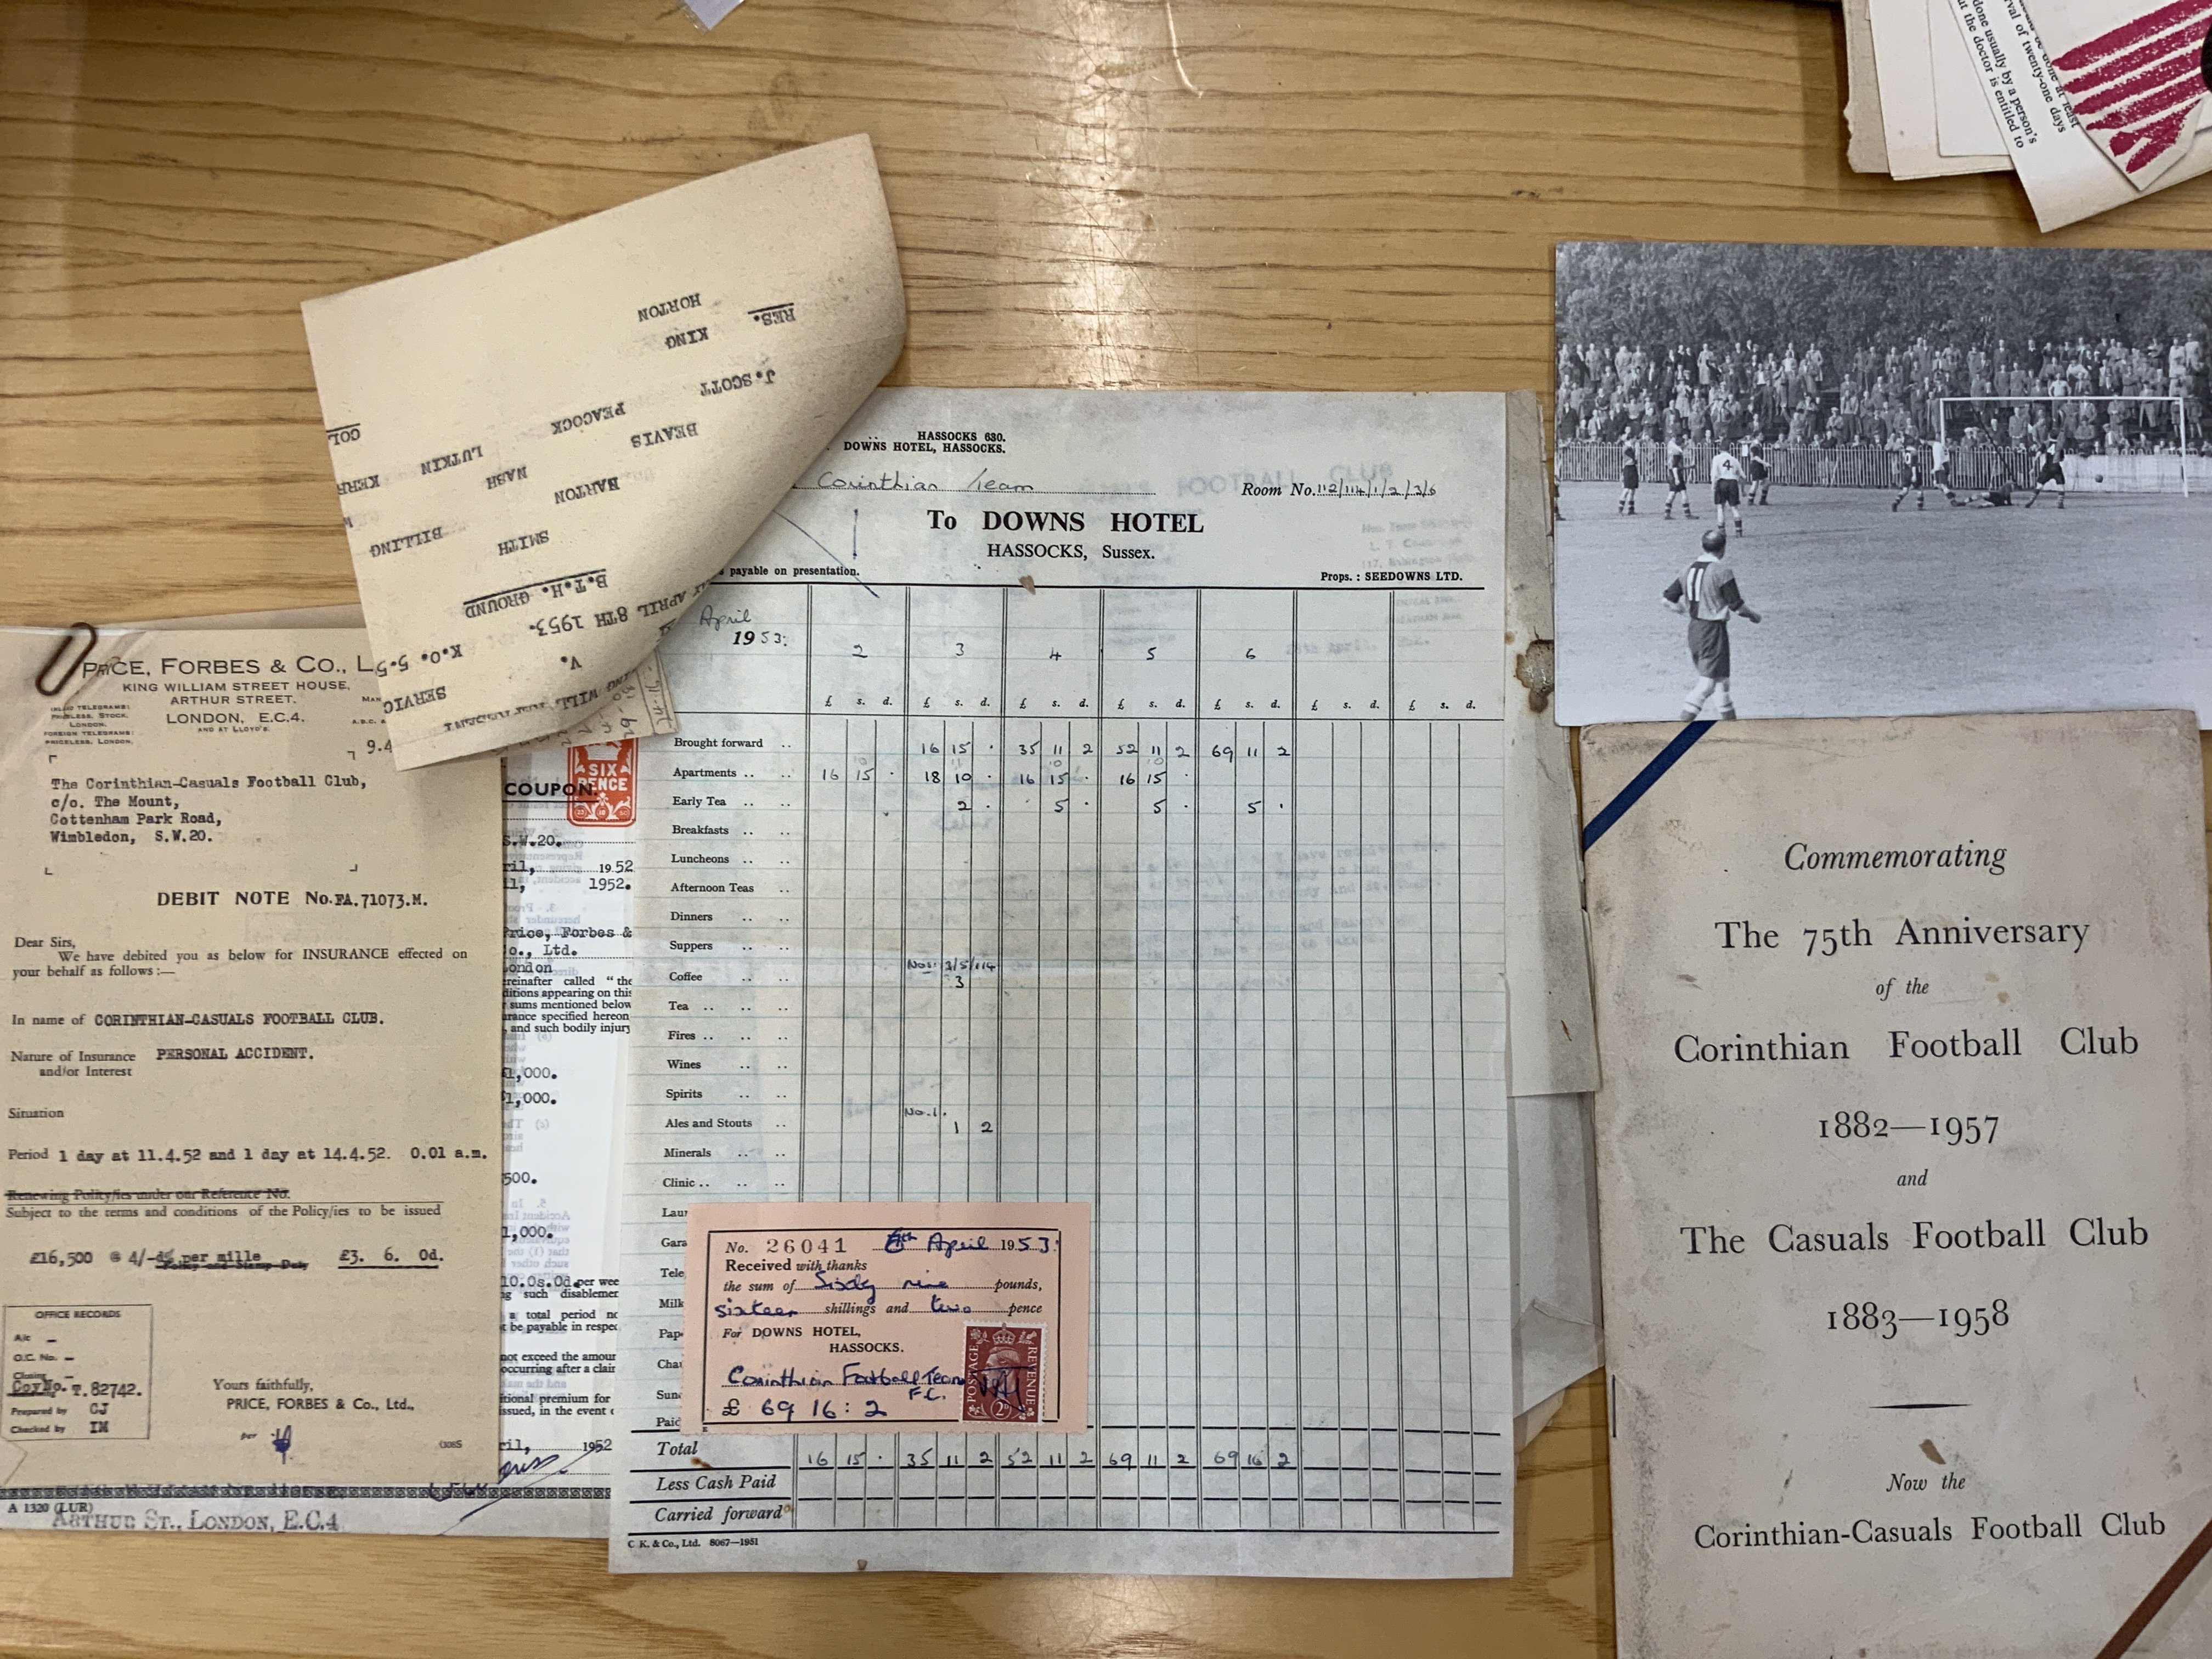 done at least
rval of twenty-one days
done usually by a person's
the doctor is entitled to
RES.
HORTON
KING
J.SCOTT
PEACOCK
BEAVIS
LUTKIN
NASH
BARTON
KERR
BILLING
SMITH
B.T.H. GROUND
APRIL 8TH 1953.
K.O. 5.5
V.
SERVIC
PRICE, FORBES & CO., L
KING WILLIAM STREET HOUSE,
ARTHUR STREET,
LONDON, E.C.4.
AND AT LLOYD'S.
INLAND TELEGRAMS:
PRICELESS, STOCK,
LONDON.
FOREIGN TELEGRAMS:
PRICELESS, LONDON.
9.4
The Corinthian-Casuals Football Club,
c/o. The Mount,
Cottenham Park Road,
Wimbledon, S.W.20.
DEBIT NOTE No.FA.71073.M.
Dear Sirs,
We have debited you as below for INSURANCE effected on
your behalf as follows :—
In name of CORINTHIAN-CASUALS FOOTBALL CLUB.
Nature of Insurance PERSONAL ACCIDENT.
and/or Interest
Situation
Period 1 day at 11.4.52 and 1 day at 14.4.52. 0.01 a.m.
Renewing Policy/ies under our Reference No.
Subject to the terms and conditions of the Policy/ies to be issued
£16,500 @ 4/- per mille £3. 6. 0d.
Policy and Stamp Duty
OFFICE RECORDS
A/c —
O.C. No. —
Closing
Coy No. T.82742.
Prepared by CJ
Checked by IM
Yours faithfully,
PRICE, FORBES & Co., Ltd.,
per
A 1320 (LUR)
ARTHUR ST., LONDON, E.C.4
COUPON.
SIX
PENCE
S.W.20.
ril, 1952
il, 1952.
Price, Forbes &
o., Ltd.
ondon
reinafter called "the
ditions appearing on this
sums mentioned below
urance specified hereon
, and such bodily injury
1,000.
1,000.
500.
1,000.
10.0s.0d.per wee
g such disablemen
a total period no
be payable in respec
not exceed the amoun
occurring after a clair
itional premium for
ssued, in the event
ril, 1952
HASSOCKS 630.
DOWNS HOTEL, HASSOCKS.
Corinthian Team
Room No. 112/114/1/2/3/6
To DOWNS HOTEL
HASSOCKS, Sussex.
payable on presentation.
Props. : SEEDOWNS LTD.
April
1953: 2 3 4 5 6
£ s. d. £ s. d. £ s. d. £ s. d. £ s. d. £ s. d. £ s. d.
Brought forward .. 16 15 . 35 11 2 52 11 2 69 11 2
Apartments .. .. 16 15 . 18 10 . 16 15 . 16 15 .
Early Tea .. .. 2 . 5 . 5 . 5 .
Breakfasts .. ..
Luncheons .. ..
Afternoon Teas ..
Dinners .. ..
Suppers .. ..
Nos. 3/5/114
Coffee .. .. 3
Tea .. .. ..
Fires .. .. ..
Wines .. ..
Spirits .. ..
No. 1.
Ales and Stouts .. 1 2
Minerals .. ..
Clinic .. .. ..
Lau
Gara
Tele
Milk
Pap
Cha
Sun
Paid
Total 16 15 . 35 11 2 52 11 2 69 11 2 69 16 2
Less Cash Paid
Carried forward
C. K. & Co., Ltd. 8067—1951
No. 26041 6th April 1953:
Received with thanks
the sum of Sixty nine pounds,
sixteen shillings and two pence
For DOWNS HOTEL,
HASSOCKS.
Corinthian Football Team
F.C.
£ 69 16 : 2
POSTAGE
REVENUE
2D
4
11
Commemorating
The 75th Anniversary
of the
Corinthian Football Club
1882—1957
and
The Casuals Football Club
1883—1958
Now the
Corinthian-Casuals Football Club